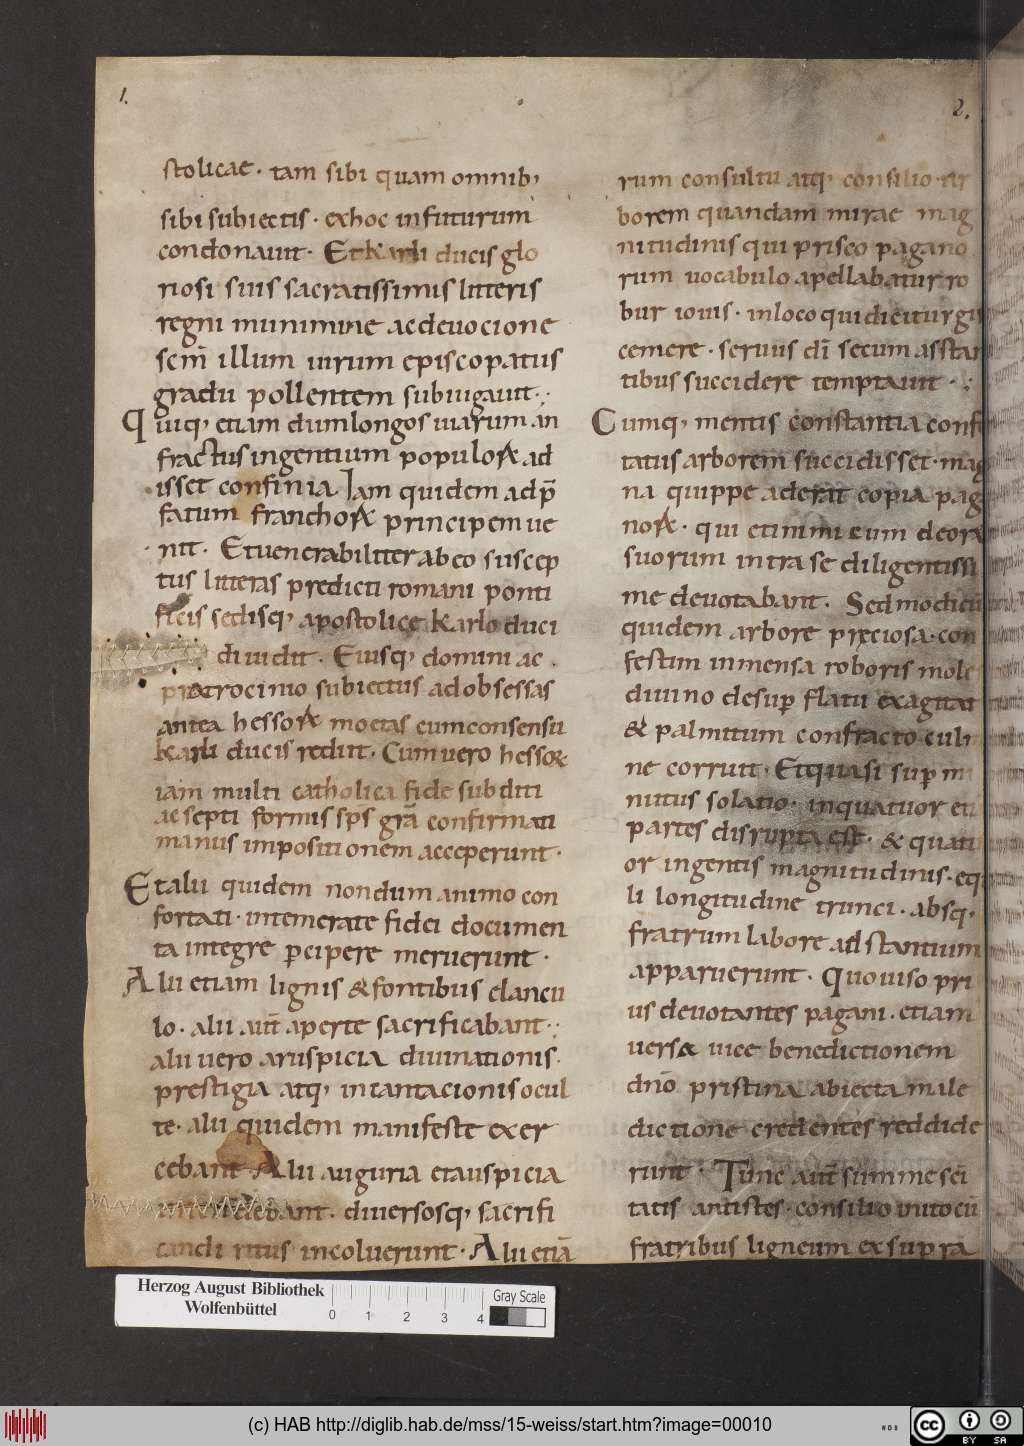 1.
2.
stolicae · tam sibi quam omnib;
sibi subiectis · exhoc infuturum
condonauit · Et karli ducis glo
riosi suis sacratissimis litteris
regni munimine ac deuocione
scm̄ illum uirum episcopatus
gradu pollentem subiugauit ·,·
Quiq; etiam dumlongos uiarum an
fractus ingentium populoꝝ ad
isset confinia Iam quidem adp̄
fatum franchoꝝ principem ue
nit · Et uenerabiliter ab eo suscep
tus litteras predicti romani ponti
ficis sedisq; apostolice karlo duci
diuidit · Eiusq; domini ac
patrocinio subiectus ad obsessas
antea hessoꝝ mo&as cum consensu
Karli ducis rediit · Cum uero hessoꝝ
iam multi catholica fide subditi
ac septiformis sp̄s grā confirmati
manus impositionem acceperunt ·
Et alii quidem nondum animo con
fortati · intemerate fidei documen
ta integre ꝑcipere meruerunt ·
Alii etiam lignis & fontibus clancu
lo · alii aut̄ aperte sacrificabant ·,·
alii uero aruspicia diuinationis ·
prestigia atq; incantacionis ocul
te · alii quidem manifeste exer
cebant Alii auguria et auspicia
intendebant · diuersosq; sacrifi
candi ritus incoluerunt · Alii etiā
rum consultu atq; consilio · ar
borem quandam mirae mag
nitudinis qui prisco pagano
rum uocabulo apellabatur ro
bur iouis · in loco qui dicitur
cemere · seruis dī secum
tibus succidere temptauit · ,·
Cumq; mentis constantia
tatus arborem succidisset ·
na quippe aderat copia
noꝝ · qui et inimicum
suorum intra se diligentissi
me deuotabant · Sed modicū
quidem arbore preciosa · con
festim inmensa roboris
diuino desuꝑ flatu exagitat
& palmitum confracto
ne corruit · Et quasi suꝑ
nutus solatio · in quatuor
partes disrupta est · &
or ingentis magnitudinis ·
li longitudine trunci · absq;
fratrum labore adstantium
apparuerunt · Quo uiso pri
us deuotantes pagani · etiam
uers& uice benedictionem
dnō pristina abiecta male
dictione credentes reddide
runt · Tunc aut̄ summe scī
tatis antistes · consilio inito cū
fratribus ligneum ex supra
Herzog August Bibliothek
Wolfenbüttel
0 1 2 3 4
Gray Scale
(c) HAB http://diglib.hab.de/mss/15-weiss/start.htm?image=00010
cc BY SA